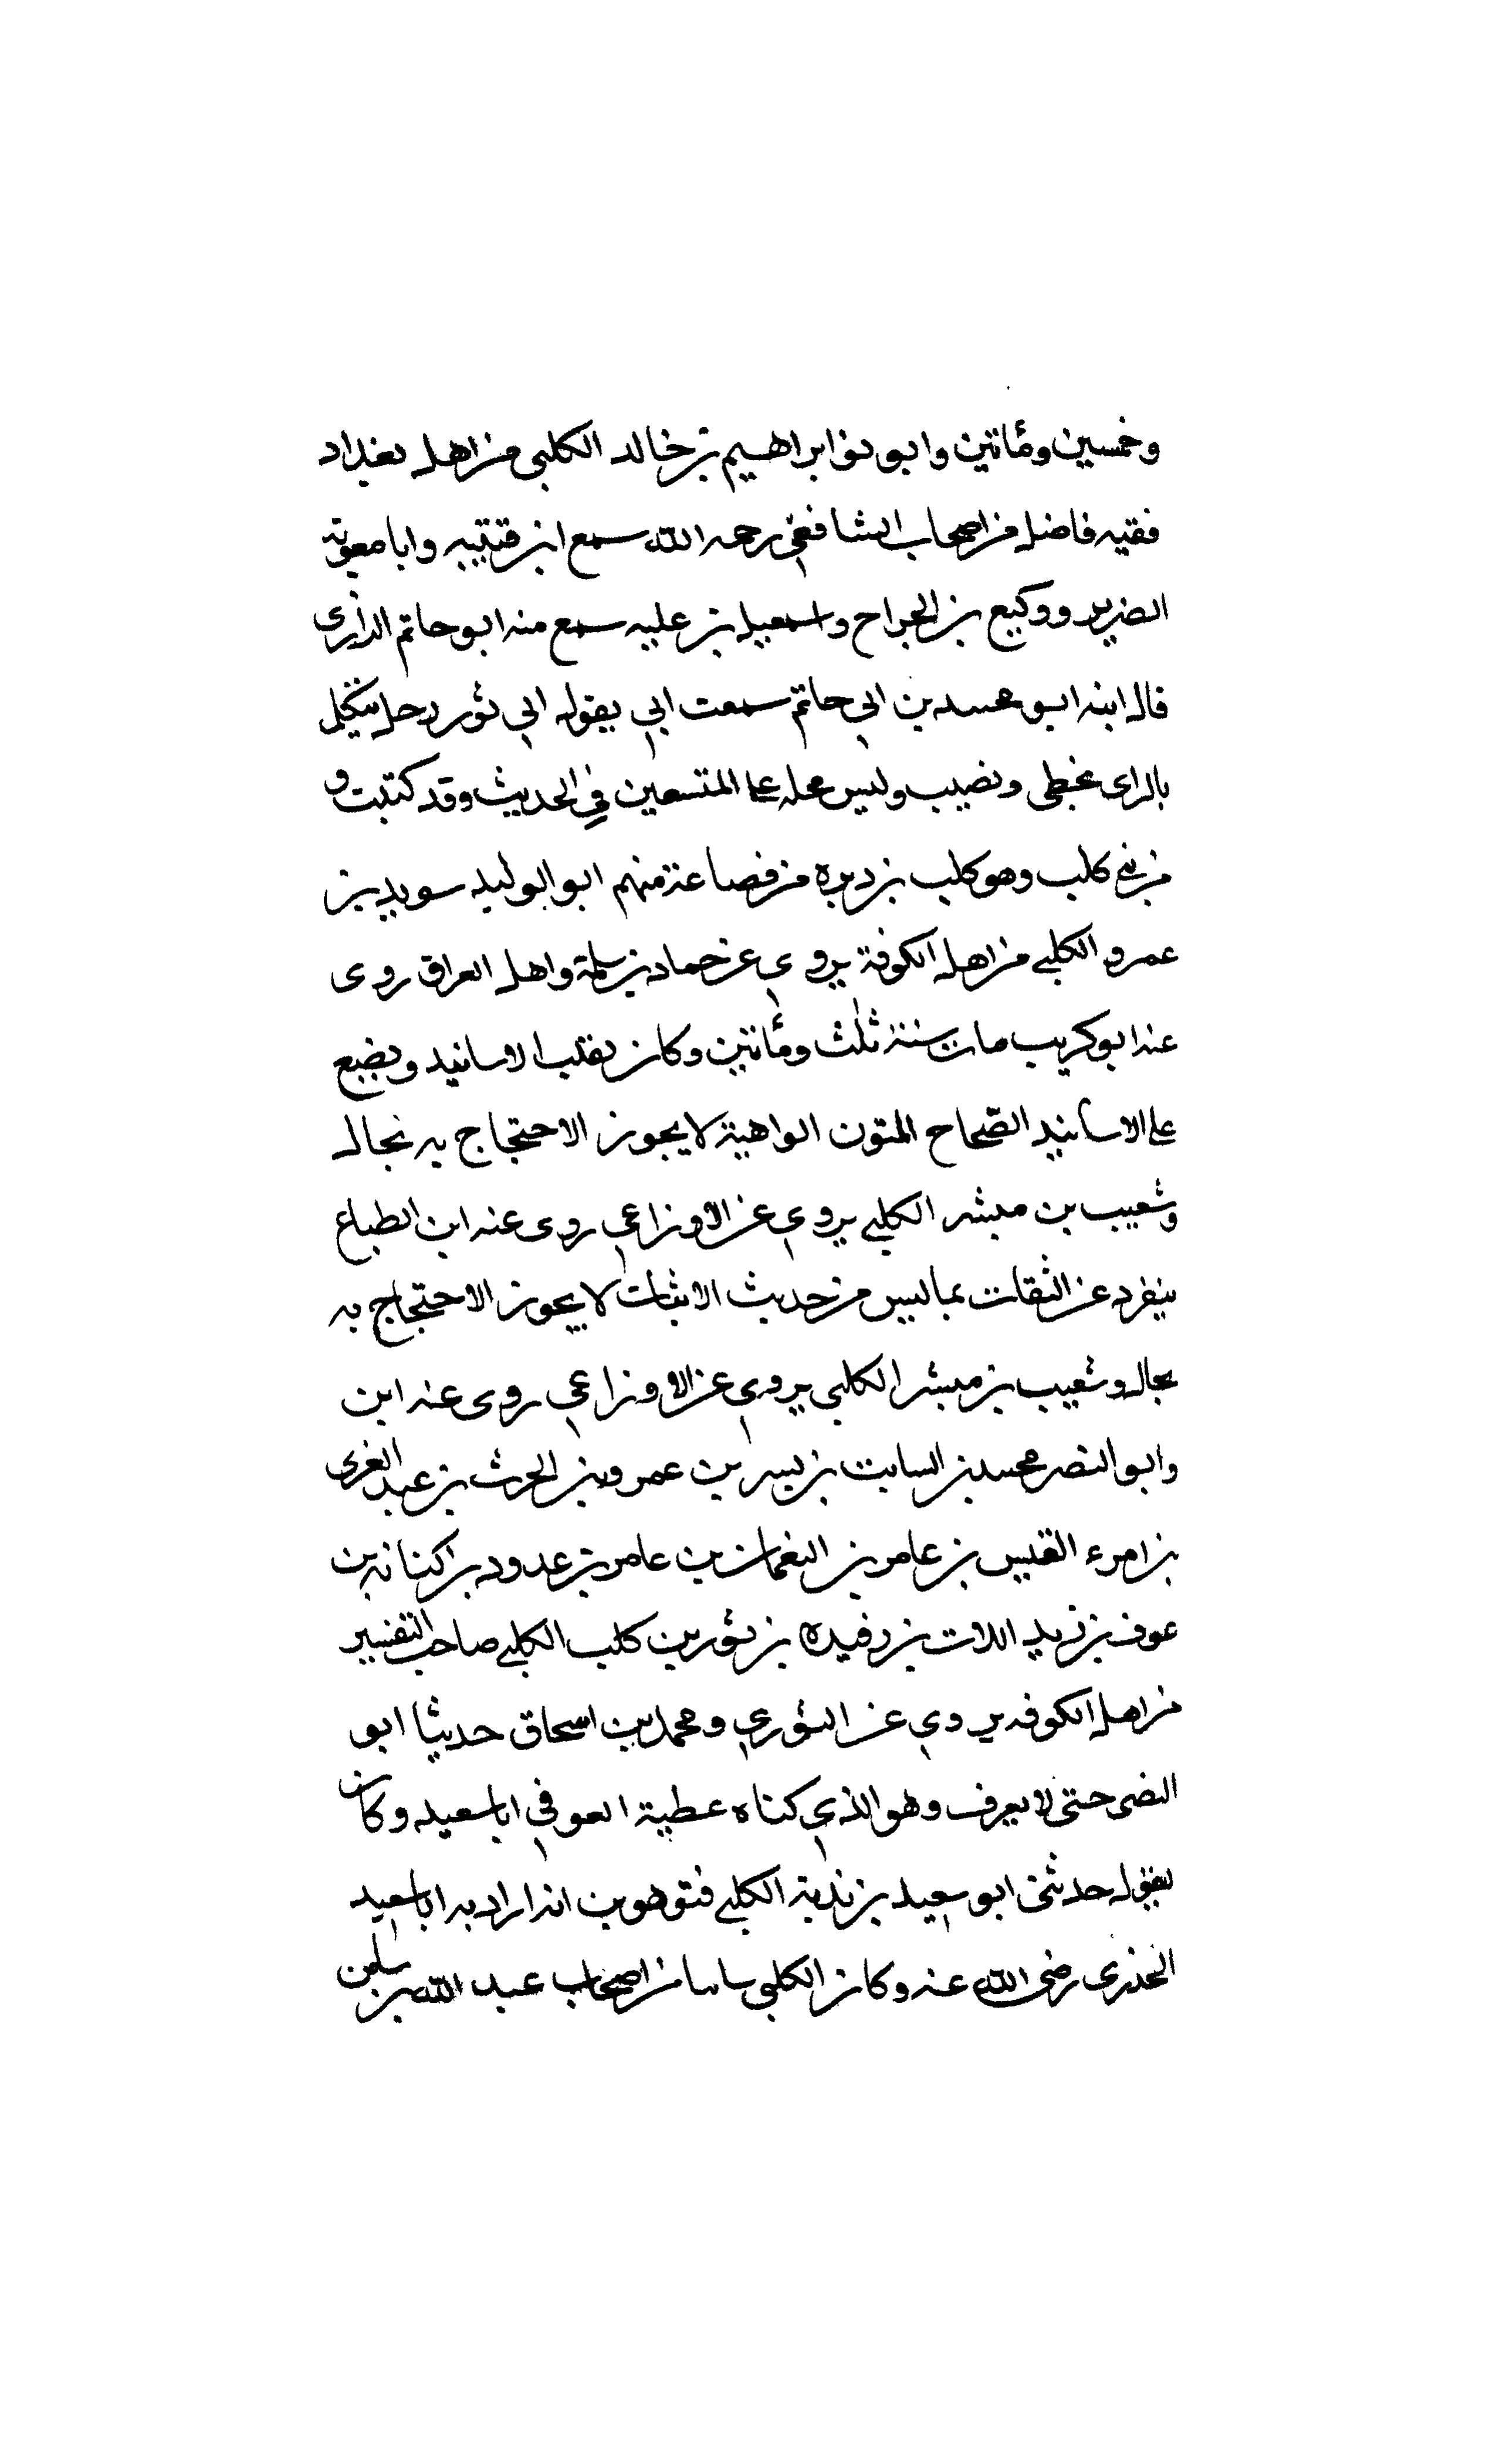 وخمسين ومأتين وابو ثور ابراهيم بن خالد الكلبي من اهل بغداد
فقيه فاضل من اصحاب الشافعي رحمه الله سمع ابن قتيبه وابا معوية
الضرير ووكيع بن الجراح واسمعيل بن عليه سمع منه ابو حاتم الرازي
قال ابنه ابو محمد بن ابي حاتم سمعت ابي يقول ابي ثور رجل يتكلم
بالراي يخطي ويصيب وليس محله على المتسعين في الحديث وقد كتبت و
من كلب وهو كلب بن وبره من قضاعة منهم ابو الوليد سويد بن
عمرو الكلبي من اهل الكوفة يروي عن حماد بن سلمة واهل العراق روى
عنه ابو كريب مات سنة ثلث ومأتين وكان يقلب الاسانيد ويضع
على الاسانيد الصحاح المتون الواهية لا يجوز الاحتجاج به بحال
وشعيب بن مبشر الكلبي يروي عن الاوزاعي روى عنه ابن الطباع
ينفرد عن الثقات بما ليس من حديث الاثبات لا يجوز الاحتجاج به
بحال وشعيب بن مبشر الكلبي يروي عن الاوزاعي روى عنه ابن
وابو النضر محمد بن السايب بن بشر بن عمرو بن الحرث بن عبد العزى
بن امرء القيس بن عامر بن النعمان بن عامر بن عبدود بن كنانه بن
عوف بن زيد اللات بن رفيده بن ثور بن كلب الكلبي صاحب التفسير
من اهل الكوفه يروي عن الثوري ومحمد بن اسحاق حدثنا ابو
النضر حتى لا يعرف وهو الذي كناه عطية العوفي ابا سعيد وكان
يقول حدثني ابو سعيد بن ندبة الكلبي فتوهوبن انه اراد به ابا سعيد
الخذري رضي الله عنه وكان الكلبي سابيا من اصحاب عبد الله بن